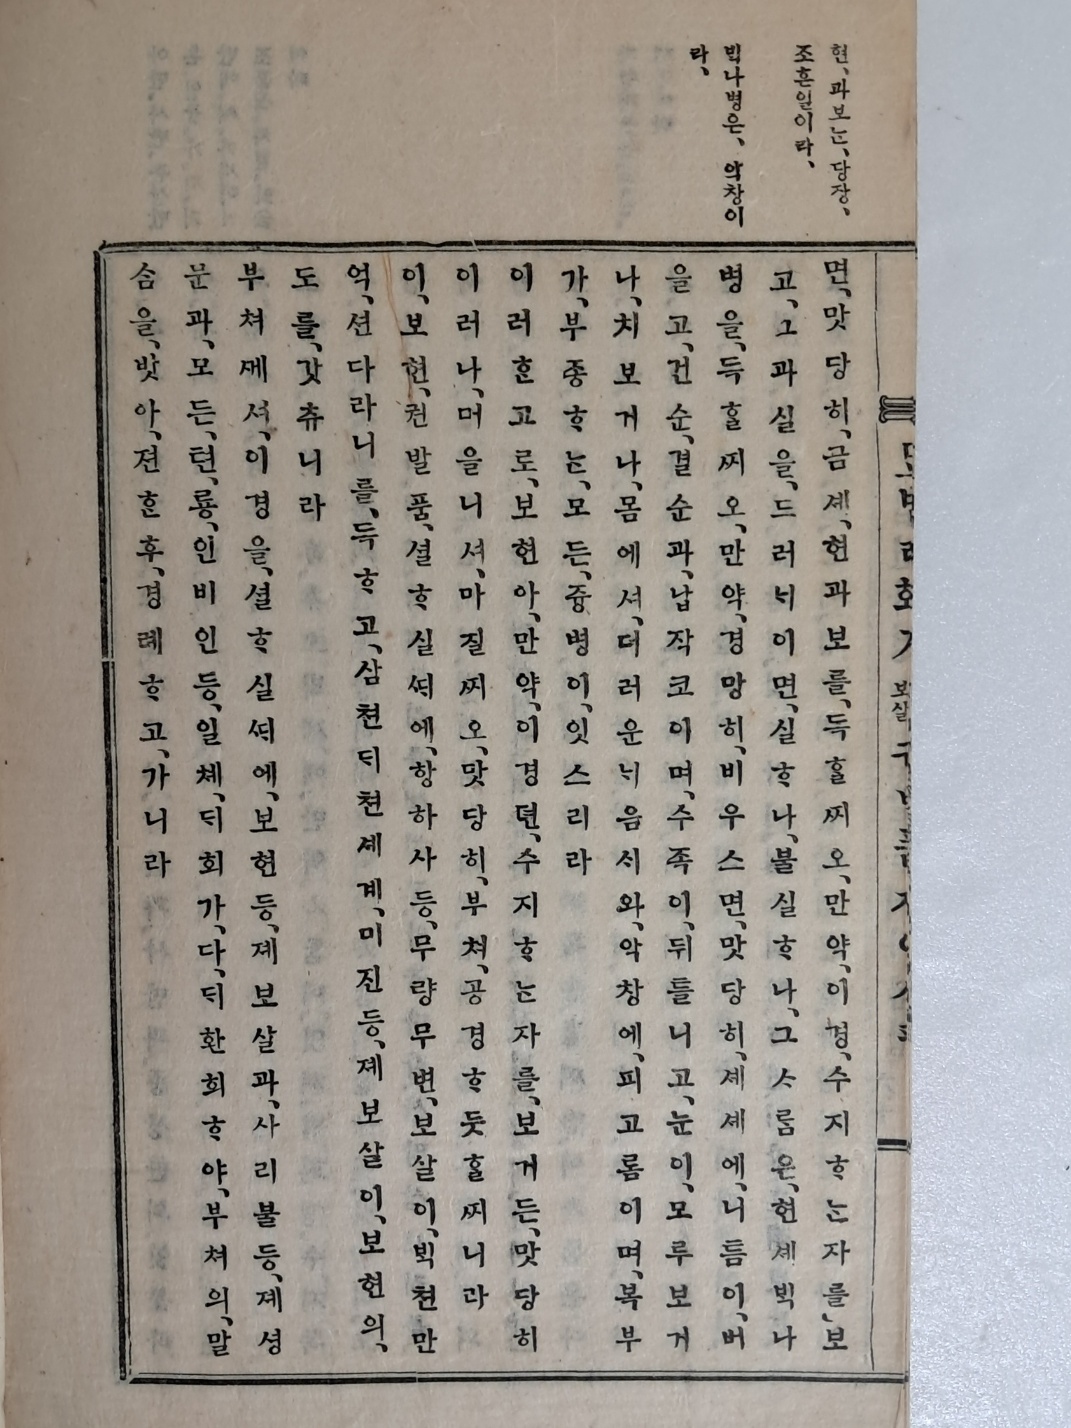 현、과보ᄂᆞᆫ、당장、
조흔일이라、
ᄇᆡᆨ나병은、악창이
라、
면、맛당히、금셰、현과보를、득ᄒᆞᆯ찌오、만약、이경、수지ᄒᆞᄂᆞᆫ자를、보
고、그과실을、드러ᄂᆡ이면、실ᄒᆞ나、불실ᄒᆞ나、그ᄉᆞ룸은、현셰ᄇᆡᆨ나
병을、득ᄒᆞᆯ찌오、만약、경망히、비우스면、맛당히、셰셰에、니틈이、버
을고、건순、결순과、납작코이며、수족이、뒤틀니고、눈이、모루보거
나、치보거나、몸에셔、더러운ᄂᆡ음ᄉᆡ와、악창에、피고롬이며、복부
가、부종ᄒᆞᄂᆞᆫ、모든、즁병이、잇스리라
이러ᄒᆞᆫ고로、보현아、만약、이경뎐、수지ᄒᆞᄂᆞᆫ자를、보거든、맛당히
이러나、머을니셔、마질찌오、맛당히、부쳐、공경ᄒᆞ듯ᄒᆞᆯ찌니라
이、보현、권발품、셜ᄒᆞ실ᄯᅢ에、항하사등、무량무변、보살이、ᄇᆡᆨ쳔만
억、션다라니를、득ᄒᆞ고、삼쳔ᄃᆡ쳔셰계、미진등、졔보살이、보현의、
도를、갓츄니라
부쳐ᄭᅦ셔、이경을、셜ᄒᆞ실ᄯᅢ에、보현등、졔보살과、사리불등、졔셩
문과、모든、텬、룡、인비인등、일쳬、ᄃᆡ회가、다、ᄃᆡ환희ᄒᆞ야、부쳐의、말
슴을、밧아、젼ᄒᆞᆫ후、경례ᄒᆞ고、가니라